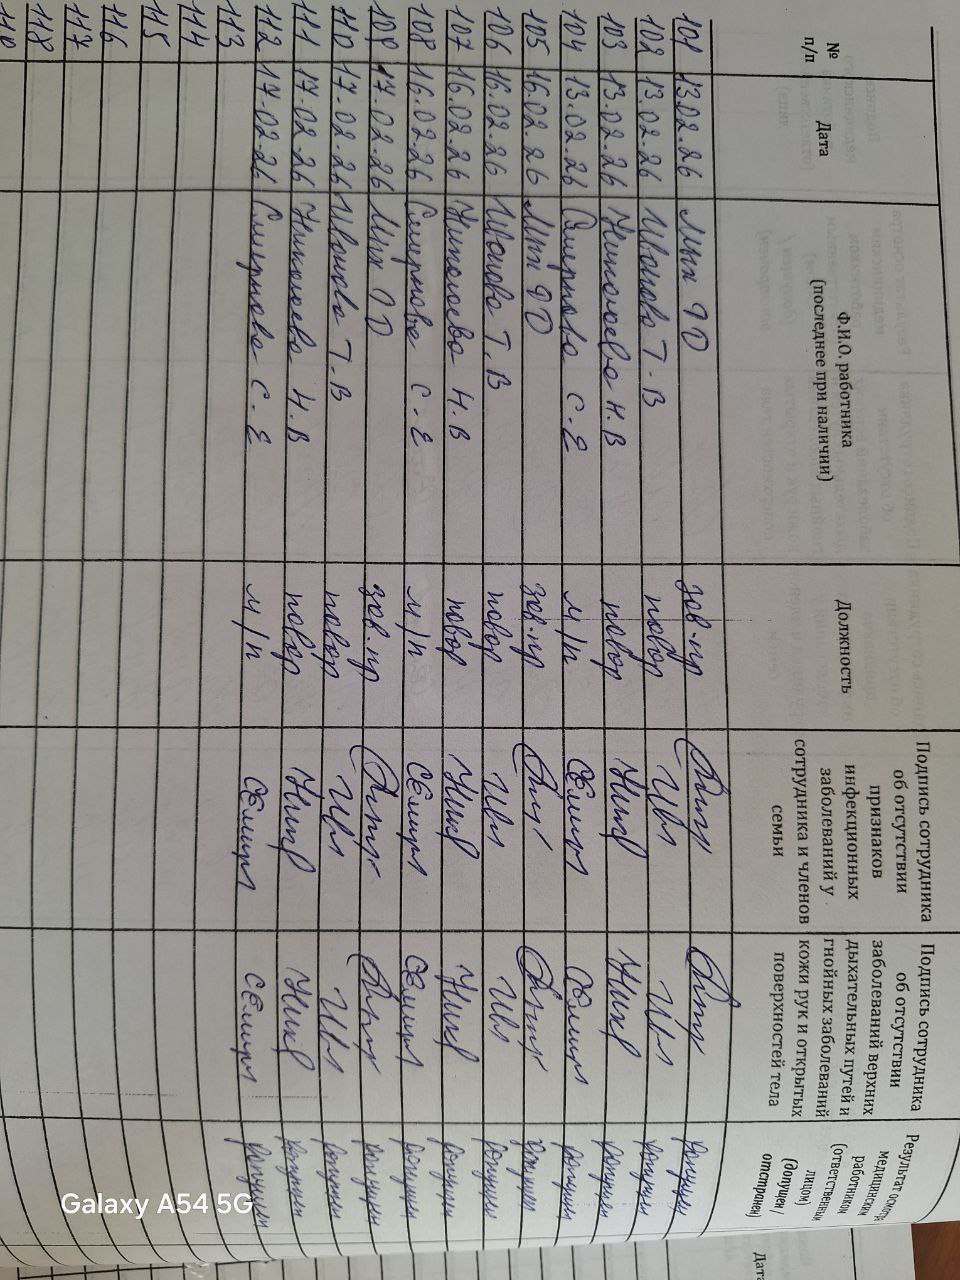 № п/п
Дата
Ф.И.О. работника
(последнее при наличии)
Должность
Подпись сотрудника
об отсутствии
признаков
инфекционных
заболеваний у
сотрудника и членов
семьи
Подпись сотрудника
об отсутствии
заболеваний верхних
дыхательных путей и
гнойных заболеваний
кожи рук и открытых
поверхностей тела
Результат
медицинским
работником
(ответственным
лицом)
(допущен /
отстранен)
101 13.02.26 зав.пр допущен
102 13.02.26 Иванова Т.В повар Ив допущен
103 13.02.26 Николаева Н.В повар Ник допущен
104 13.02.26 Смирнова С.Е м/п допущен
105 16.02.26 зав.пр допущен
106 16.02.26 Иванова Т.В повар Ив допущен
107 16.02.26 Николаева Н.В повар Ник допущен
108 16.02.26 Смирнова С.Е м/п допущен
109 17.02.26 зав.пр допущен
110 17.02.26 Иванова Т.В повар Ив допущен
111 17.02.26 Николаева Н.В повар Ник допущен
112 17.02.26 Смирнова С.Е м/п допущен
113
114
115
116
117
118
Дата
Galaxy A54 5G